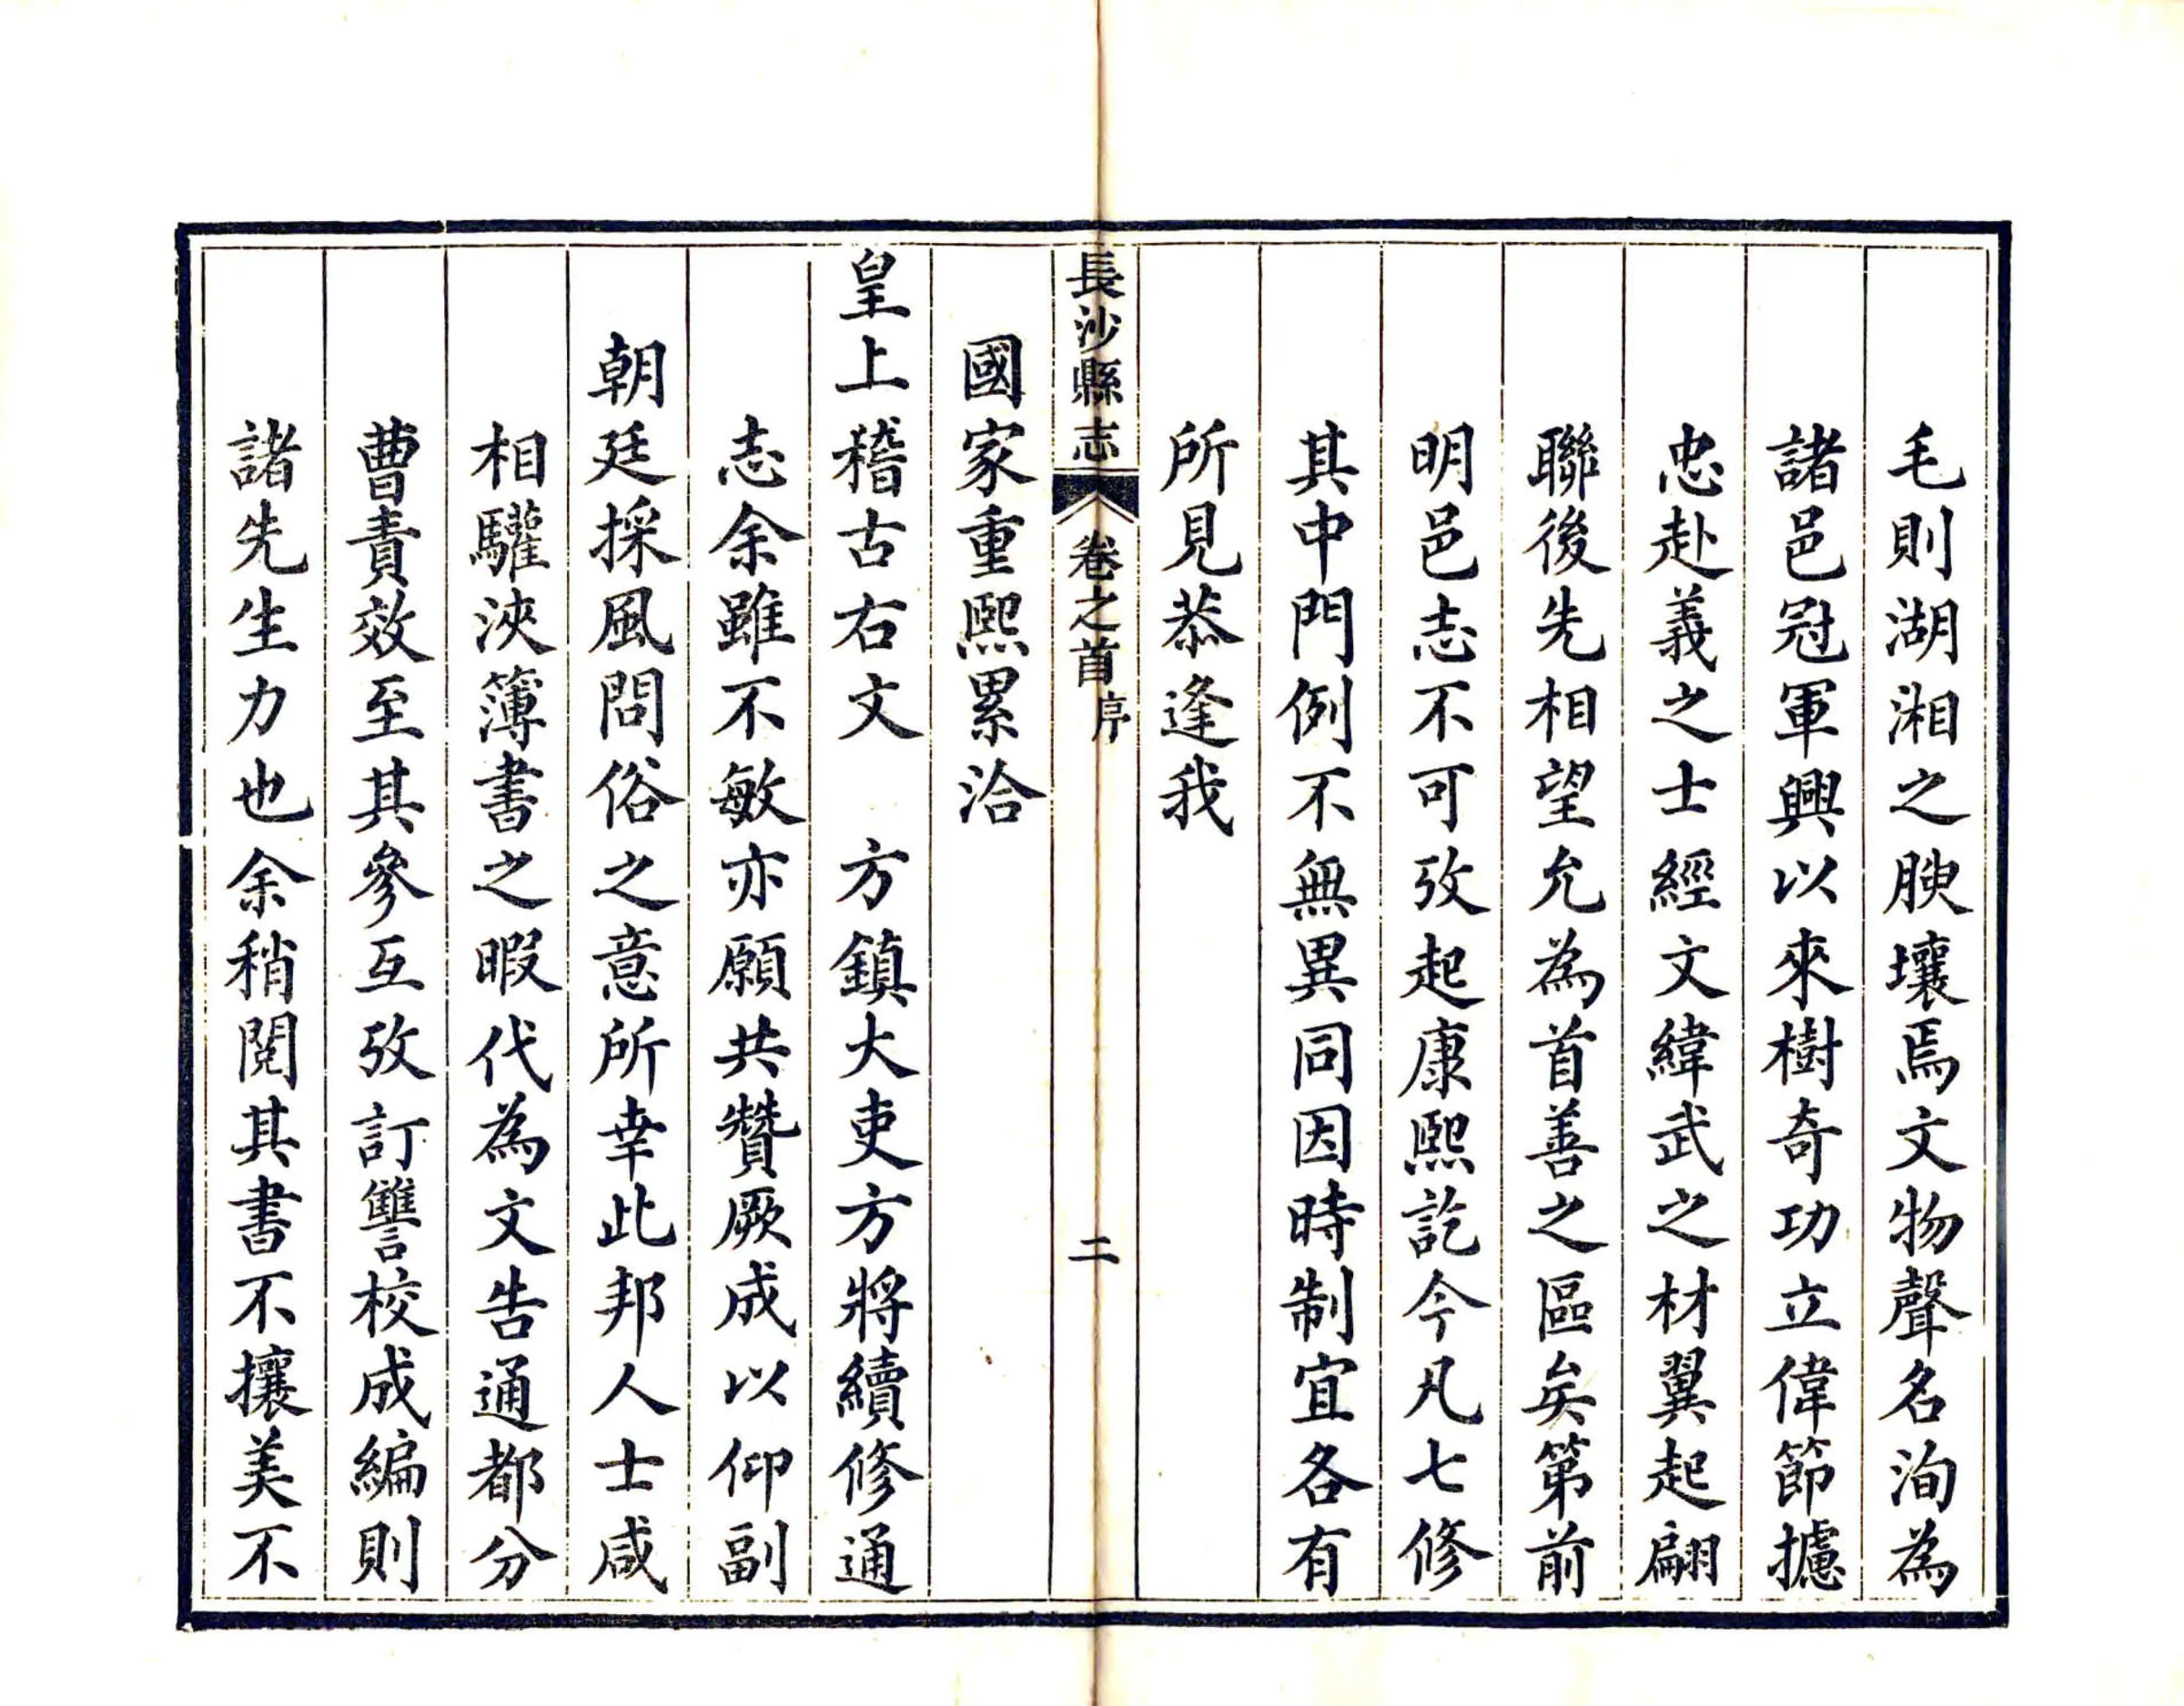 毛則湖湘之腴壤焉文物聲名洵為
諸邑冠軍興以來樹奇功立偉節攄
忠赴義之士經文緯武之材翼起翩
聯後先相望允為首善之區矣第前
明邑志不可攷起康熙訖今凡七修
其中門例不無異同因時制宜各有
所見恭逢我
長沙縣志 卷之首 序 二
國家重熙累洽
皇上稽古右文 方鎮大吏方將續修通
志余雖不敏亦願共贊厥成以仰副
朝廷採風問俗之意所幸此邦人士咸
相驩浹簿書之暇代為文告通都分
曹責效至其參互攷訂讐校成編則
諸先生力也余稍閱其書不攘美不